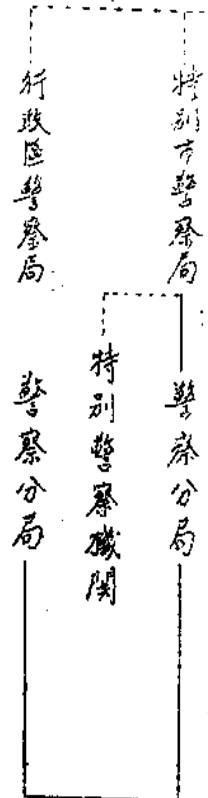 特別市警察局
警察分局
特別警察機関
行政區警察局
警察分局